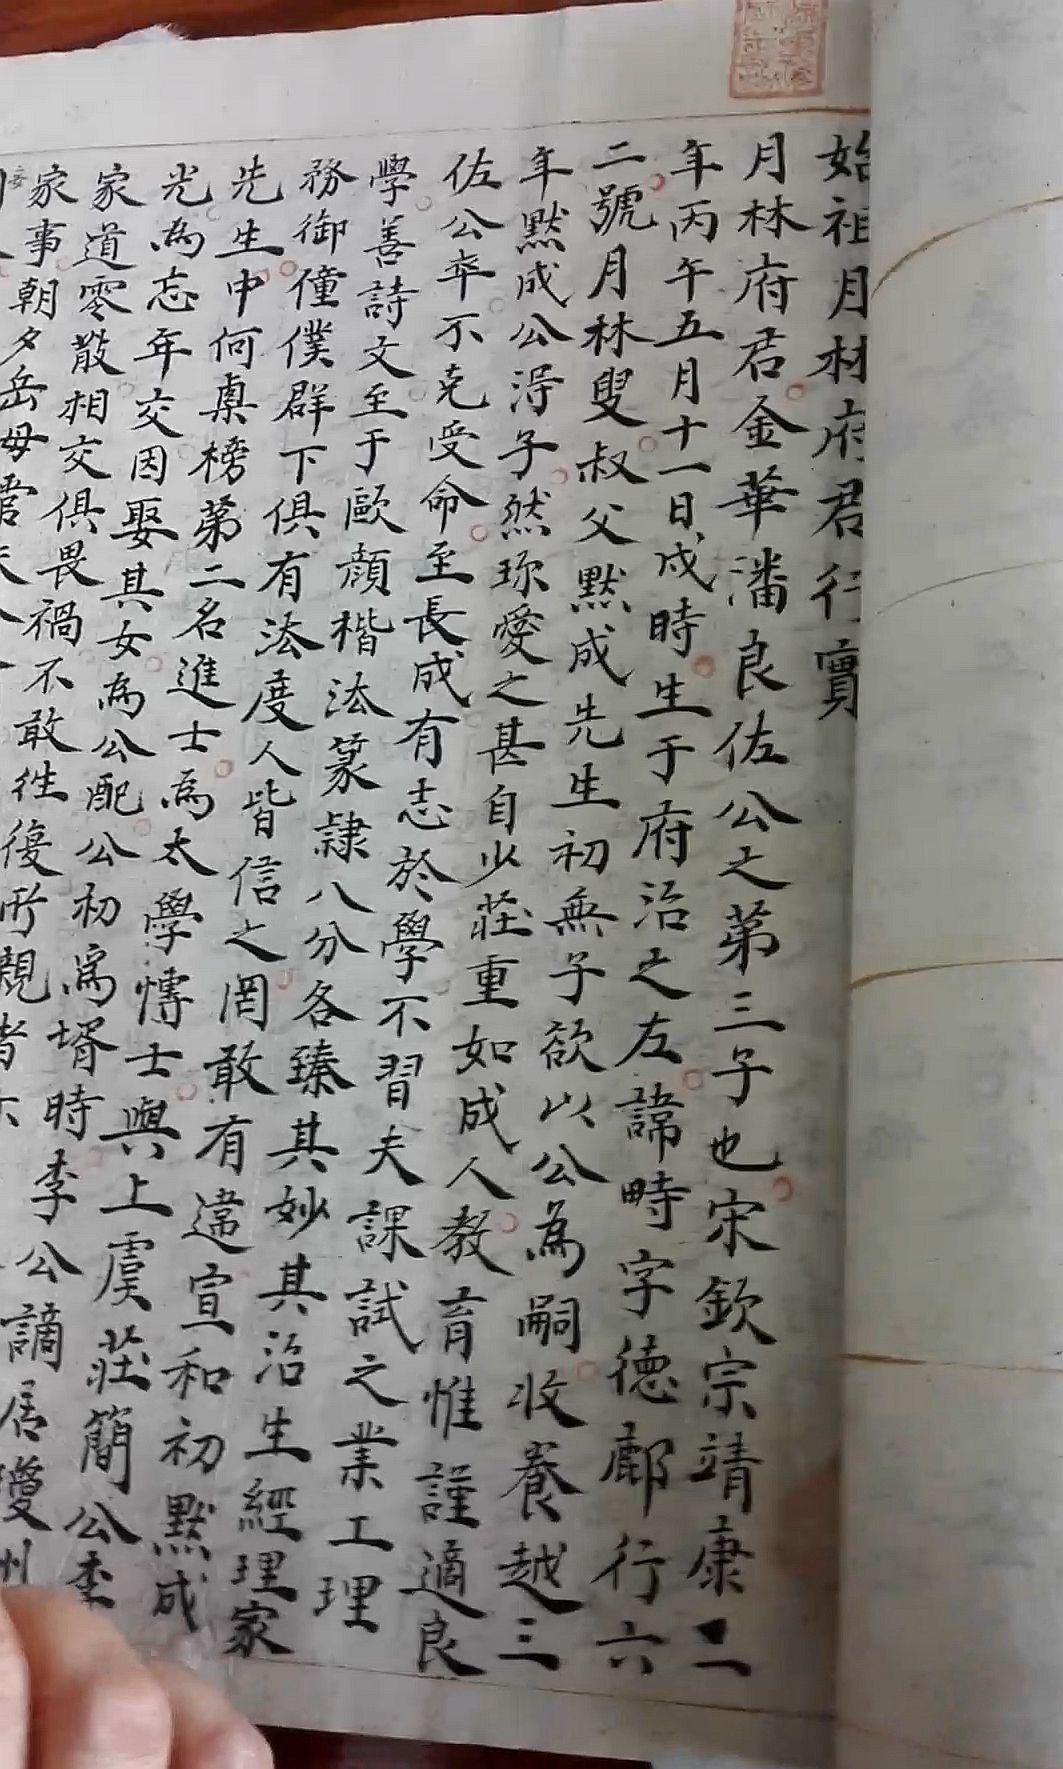 始祖月林府君行實
月林府君金華潘良佐公之第三子也宋欽宗靖康二
年丙午五月十一日戌時生于府治之左諱畤字德鄜行六
二號月林叟叔父默成先生初無子欲以公為嗣收養越三
年默成公淂子然珎愛之甚自少莊重如成人教育惟謹適良
佐公卒不克受命至長成有志於學不習夫課試之業工理
學善詩文至于歐顔楷法篆隷八分各臻其妙其治生經理家
務御僮僕群下俱有法度人皆信之罔敢有違宣和初默成
先生中何㮚榜第二名進士為太學博士與上虞莊簡公李
光為忘年交因娶其女為公配公初為壻時李公謫居瓊州
家道零散相交俱畏禍不敢徃復所親者
家事朝夕岳母